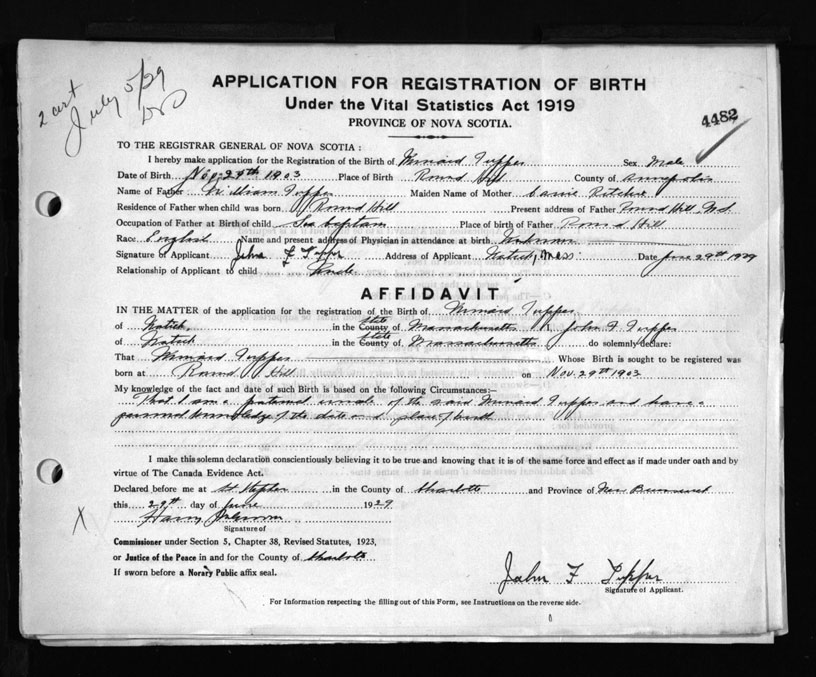 2 cert
July 5/29
APPLICATION FOR REGISTRATION OF BIRTH
Under the Vital Statistics Act 1919
PROVINCE OF NOVA SCOTIA.
4482
TO THE REGISTRAR GENERAL OF NOVA SCOTIA :
I hereby make application for the Registration of the Birth of Tupper Sex Male
Date of Birth Nov. 29th 1903 Place of Birth Round Hill County of Annapolis
Name of Father William Tupper Maiden Name of Mother Ritchie
Residence of Father when child was born Round Hill Present address of Father Round Hill N.S.
Occupation of Father at Birth of child Sea Captain Place of birth of Father Round Hill
Race English Name and present address of Physician in attendance at birth Unknown
Signature of Applicant John F Tupper Address of Applicant Natick, Mass. Date June 29th 1929
Relationship of Applicant to child Uncle
AFFIDAVIT
IN THE MATTER of the application for the registration of the Birth of Tupper
of Natick, in the State County of Massachusetts I, John F. Tupper
of Natick in the State County of Massachusetts do solemnly declare:
That Tupper Whose Birth is sought to be registered was
born at Round Hill on Nov. 29th 1903
My knowledge of the fact and date of such Birth is based on the following Circumstances:—
That I am a paternal uncle of the said Tupper and have a
personal knowledge of the date and place of birth
I make this solemn declaration conscientiously believing it to be true and knowing that it is of the same force and effect as if made under oath and by
virtue of The Canada Evidence Act.
Declared before me at St Stephen in the County of Charlotte and Province of New Brunswick
this 29th day of June 1929
X
Harry
Signature of
Commissioner under Section 5, Chapter 38, Revised Statutes, 1923,
or Justice of the Peace in and for the County of Charlotte
If sworn before a Notary Public affix seal.
John F Tupper
Signature of Applicant.
For Information respecting the filling out of this Form, see Instructions on the reverse side.